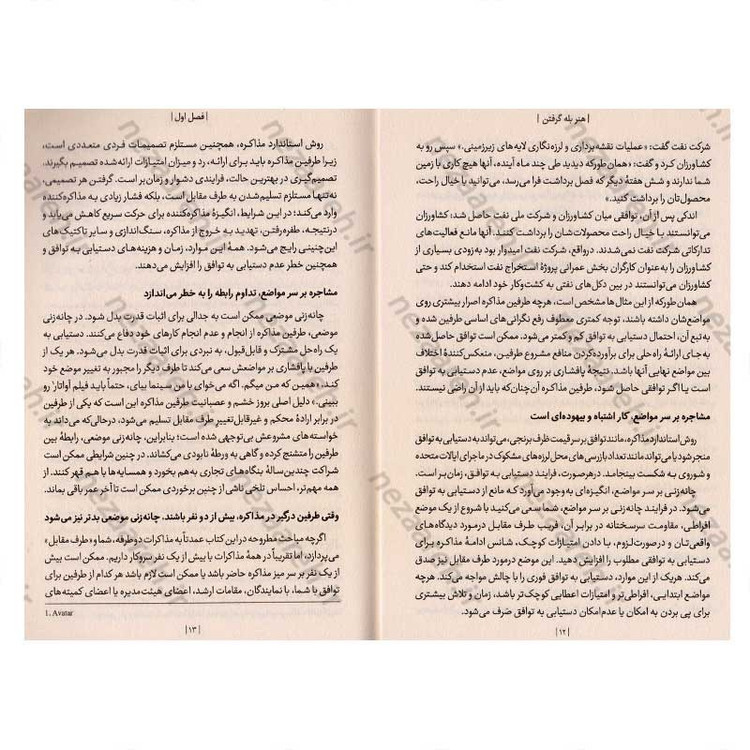 | هنر بله گرفتن |
شرکت نفت گفت: «عملیات نقشه‌برداری و لرزه‌نگاری لایه‌های زیرزمینی.» سپس رو به
کشاورزان کرد و گفت: «همان‌طورکه دیدید طی چند ماه آینده، آنها هیچ کاری با زمین
شما ندارند و شش هفتهٔ دیگر که فصل برداشت فرا می‌رسد، می‌توانید با خیال راحت،
محصول‌تان را برداشت کنید.»
اندکی پس از آن، توافقی میان کشاورزان و شرکت ملی نفت حاصل شد: کشاورزان
می‌توانستند با خیال راحت محصولات‌شان را برداشت کنند. آنها مانع فعالیت‌های
تدارکاتی شرکت نفت نمی‌شدند. درواقع، شرکت نفت امیدوار بود به‌زودی بسیاری از
کشاورزان را به‌عنوان کارگران بخش عمرانی پروژهٔ استخراج نفت استخدام کند و حتی
کشاورزان می‌توانستند در بین دکل‌های نفتی به کشت‌وکار خود ادامه دهند.
همان طورکه از این مثال‌ها مشخص است، هرچه طرفین مذاکره اصرار بیشتری روی
مواضع‌شان داشته باشند، توجه کمتری معطوف رفع نگرانی‌های اساسی طرفین شده و
به‌تبع آن، احتمال دستیابی به توافق کم و کمتر می‌شود. ممکن است توافق حاصل شده
به جای ارائهٔ راه حلی برای برآورده‌کردن منافع مشروع طرفین، منعکس‌کنندهٔ اختلاف
بین مواضع نهایی آنها باشد. نتیجهٔ پافشاری بر روی مواضع، عدم دستیابی به توافق
است یا اگر توافقی حاصل شود، طرفین مذاکره آن‌چنان‌که باید از آن راضی نیستند.
مشاجره بر سر مواضع، کار اشتباه و بیهوده‌ای است
روش استاندارد مذاکره، مانند توافق بر سر قیمت ظرف برنجی، می‌تواند به دستیابی به توافق
منجر شود یا می‌تواند مانند تعداد بازرسی‌های محل لرزه‌های مشکوک در ماجرای ایالات متحده
و شوروی به شکست بینجامد. درهرصورت، فرایند دستیابی به توافق، زمان‌بر است.
چانه‌زنی بر سر مواضع، انگیزه‌ای به‌وجود می‌آورد که مانع از دستیابی به توافق
می‌شود. در فرایند چانه‌زنی بر سر مواضع، شما سعی می‌کنید با شروع از یک موضع
افراطی، مقاومت سرسختانه در برابر آن، فریب طرف مقابل درمورد دیدگاه‌های
واقعی‌تان و درصورت‌لزوم، با دادن امتیازات کوچک، شانس ادامهٔ مذاکره برای
دستیابی به توافقی مطلوب را افزایش دهید. این موضع درمورد طرف مقابل نیز صدق
می‌کند. هریک از این موارد، دستیابی به توافق فوری را با چالش مواجه می‌کند. هرچه
مواضع ابتدایی، افراطی‌تر و امتیازات اعطایی کوچک‌تر باشد، زمان و تلاش بیشتری
برای پی بردن به امکان یا عدم‌امکان دستیابی به توافق صَرف می‌شود.
| ۱۲ |
| فصل اول |
روش استاندارد مذاکره، همچنین مستلزم تصمیمات فردی متعددی است،
زیرا طرفین مذاکره باید برای ارائه، رد و میزان امتیازات ارائه‌شده تصمیم بگیرند.
تصمیم‌گیری در بهترین حالت، فرایندی دشوار و زمان‌بر است. گرفتن هر تصمیمی،
نه‌تنها مستلزم تسلیم‌شدن به طرف مقابل است، بلکه فشار زیادی به مذاکره‌کننده
وارد می‌کند؛ در این شرایط، انگیزهٔ مذاکره‌کننده برای حرکت سریع کاهش می‌یابد و
درنتیجه، طفره‌رفتن، تهدید به خروج از مذاکره، سنگ‌اندازی و سایر تاکتیک های
این‌چنینی رایج می‌شود. همهٔ این موارد، زمان و هزینه‌های دستیابی به توافق و
همچنین خطر عدم دستیابی به توافق را افزایش می‌دهند.
مشاجره بر سر مواضع، تداوم رابطه را به خطر می‌اندازد
چانه‌زنی موضعی ممکن است به جدالی برای اثبات قدرت بدل شود. در چانه‌زنی
موضعی، طرفین مذاکره از انجام و عدم انجام کارهای خود دفاع می‌کنند. دستیابی به
یک راه‌حل مشترک و قابل‌قبول، به نبردی برای اثبات قدرت بدل می‌شود. هر یک از
طرفین با پافشاری بر مواضعش سعی می‌کند تا طرف دیگر را مجبور به تغییر موضع خود
کند. «همین که من میگم. اگه می‌خوای با من سینما بیای، حتماً باید فیلم آواتار۱ رو
ببینی.» دلیل اصلی بروز خشم و عصبانیت طرفین مذاکره این است که یکی از طرفین
در برابر ارادهٔ محکم و غیرقابل‌تغییر طرف مقابل تسلیم می‌شود، درحالی‌که می‌داند به
خواسته‌های مشروعش بی‌توجهی شده است؛ بنابراین، چانه‌زنی موضعی، رابطهٔ بین
طرفین را متشنج کرده و گاهی به ورطهٔ نابودی می‌کشاند. در چنین شرایطی ممکن است
شراکت چندین‌سالهٔ بنگاه‌های تجاری به‌هم بخورد و همسایه‌ها با هم قهر کنند. از
همه مهم‌تر، احساس تلخی ناشی از چنین برخوردی ممکن است تا آخر عمر باقی بماند.
وقتی طرفین درگیر در مذاکره، بیش از دو نفر باشند، چانه‌زنی موضعی بدتر نیز می‌شود
اگرچه مباحث مطروحه در این کتاب عمدتاً به مذاکرات دوطرفه، شما و «طرف مقابل»
می‌پردازد، اما تقریباً در همهٔ مذاکرات با بیش از یک نفر سروکار داریم. ممکن است بیش
از یک نفر بر سر میز مذاکره حاضر باشد یا ممکن است لازم باشد هر کدام از طرفین برای
توافق با شما، با نمایندگان، مقامات ارشد، اعضای هیئت‌مدیره یا اعضای کمیته‌های
1. Avatar
| ۱۳ |
nezaareh.ir